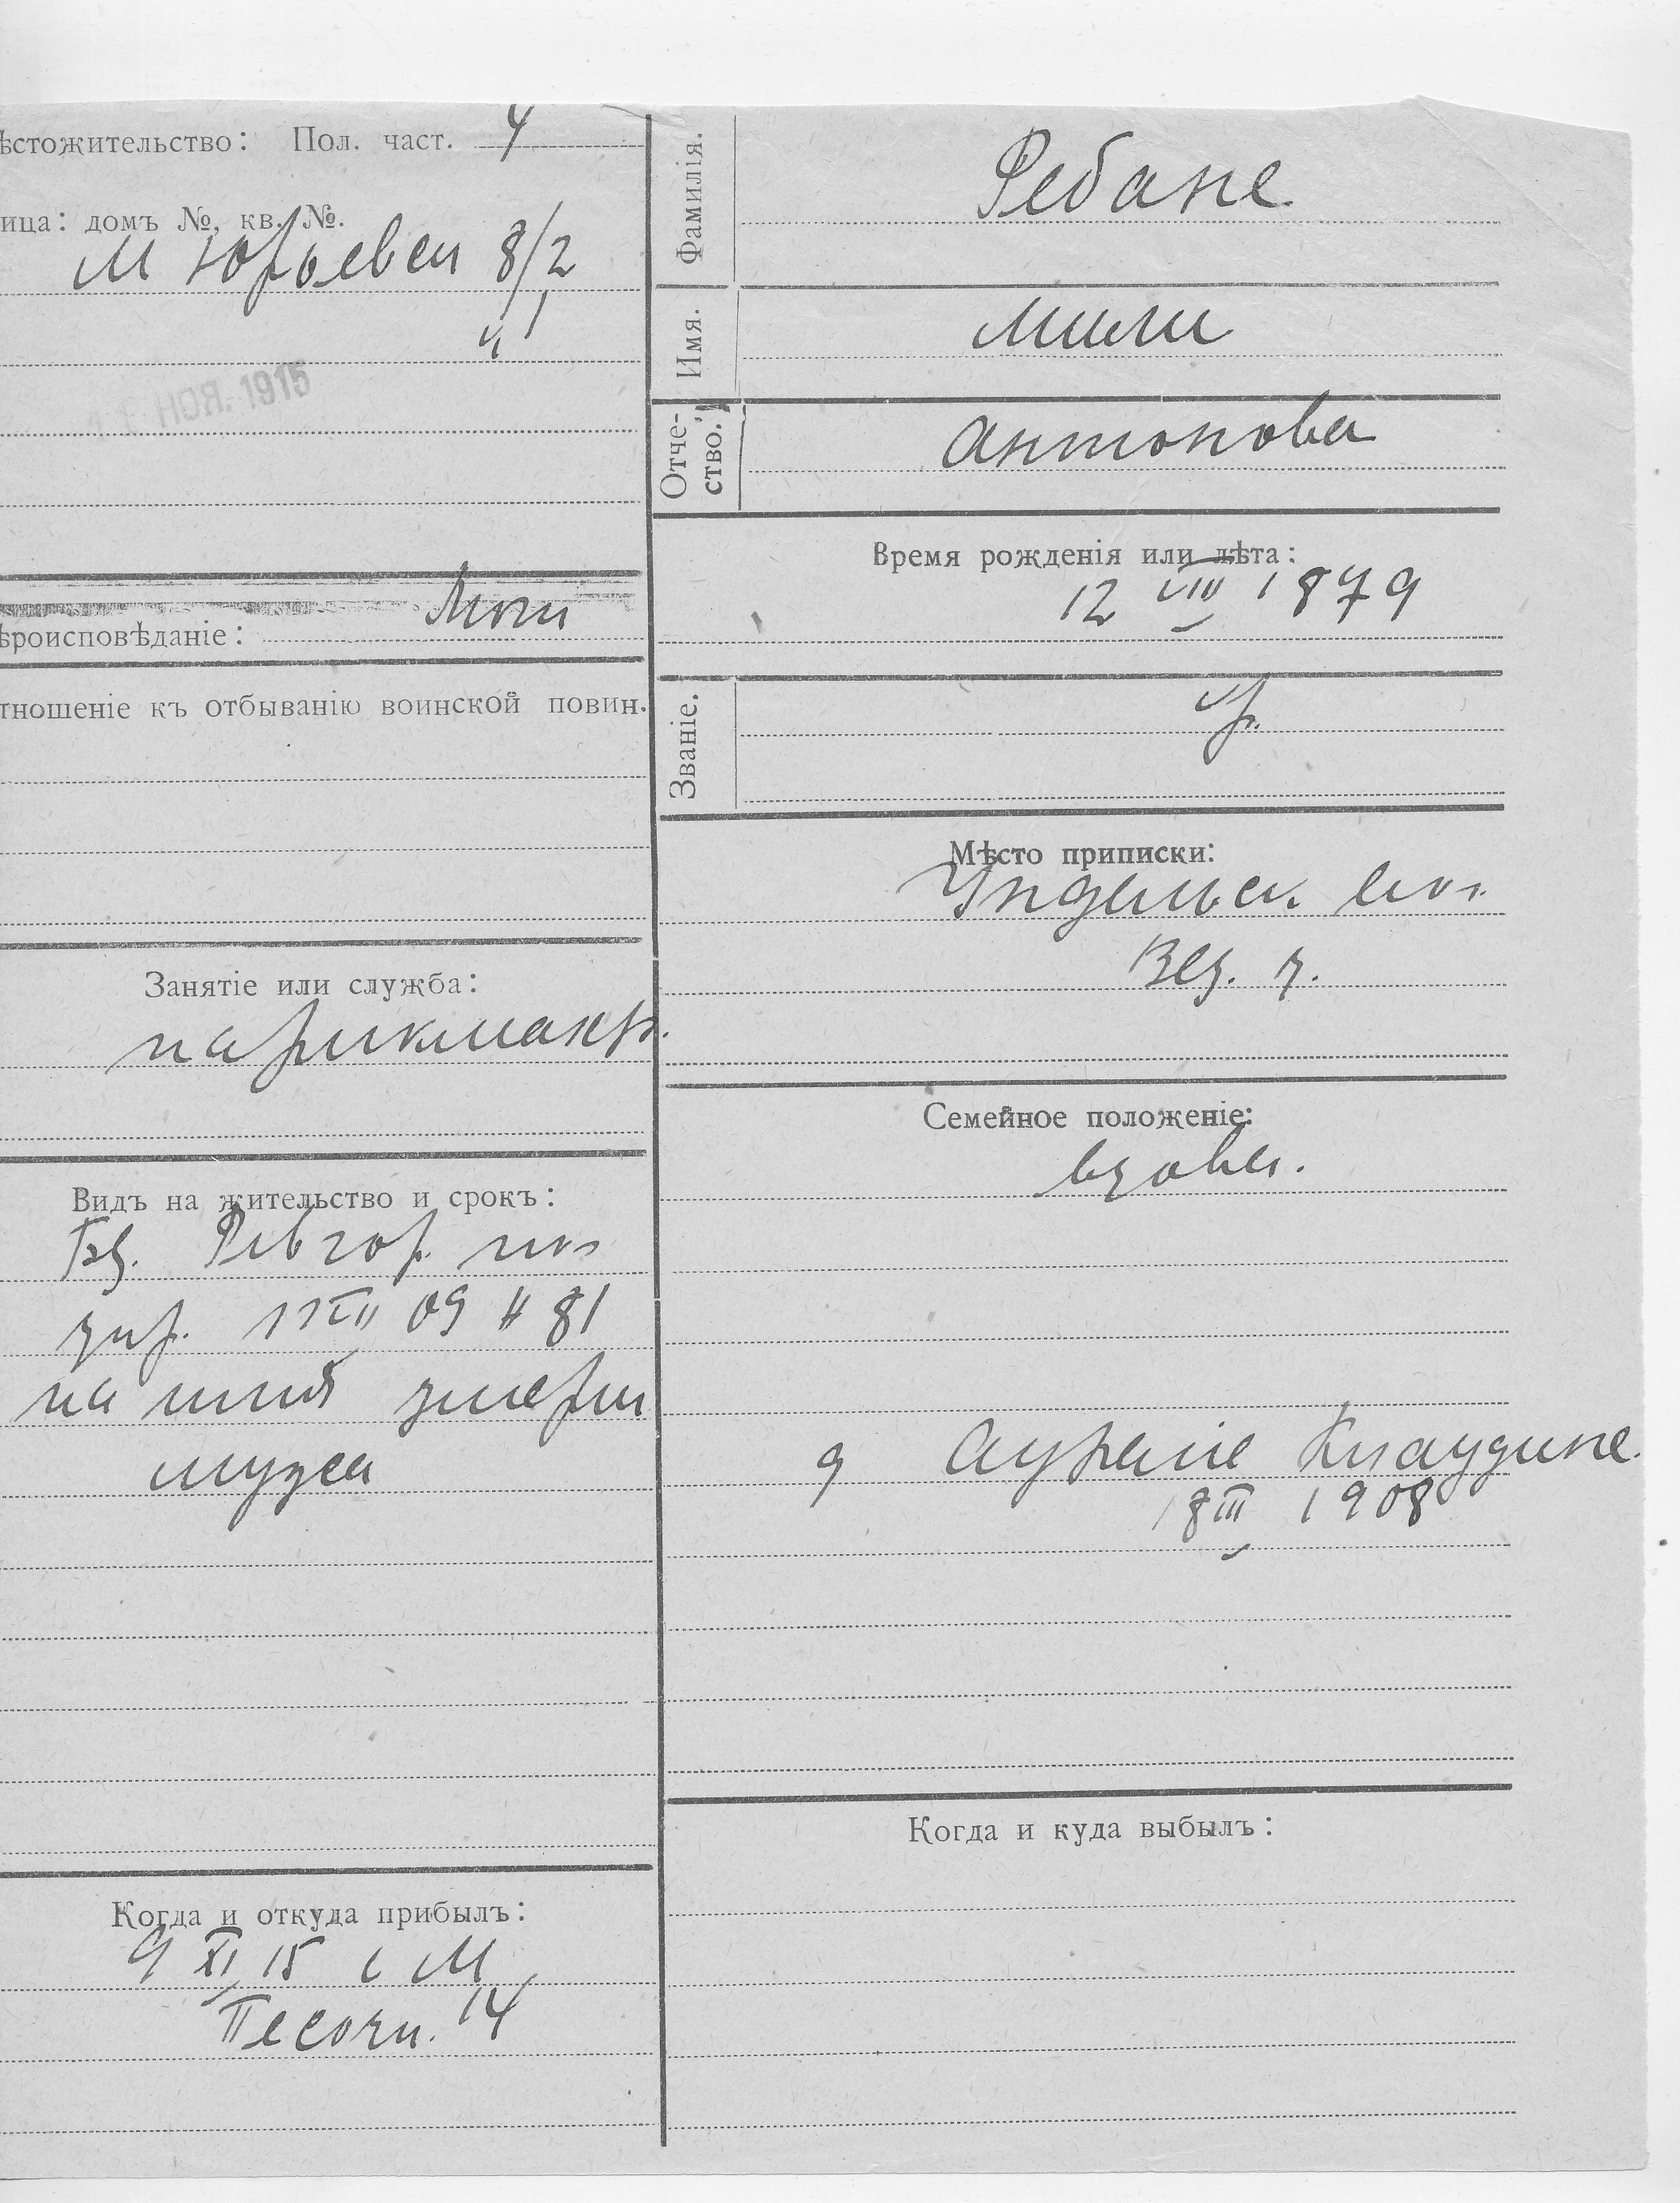 ѣстожительство: Пол. част. 4
ица: домъ №, кв. №.
М Юрьевск 8/2
НОЯ. 1915
ѣроисповѣданіе: Лют
тношеніе къ отбыванію воинской повин.
Занятіе или служба:
парикмахр.
Видъ на жительство и срокъ:
Бз. Рев гор.
09 № 81
на имя умерш
мужа
Когда и откуда прибылъ:
9 XI 15 с М
Песочн. 14
Фамилія. Ребане
Имя. Мили
Отче-
ство. Антонова
Время рожденія или лѣта:
12 VIII 1879
Званіе. кр.
Мѣсто приписки:
Вез. у.
Семейное положеніе:
вдова.
д Аурелие Клаудине.
18 III 1908
Когда и куда выбылъ: